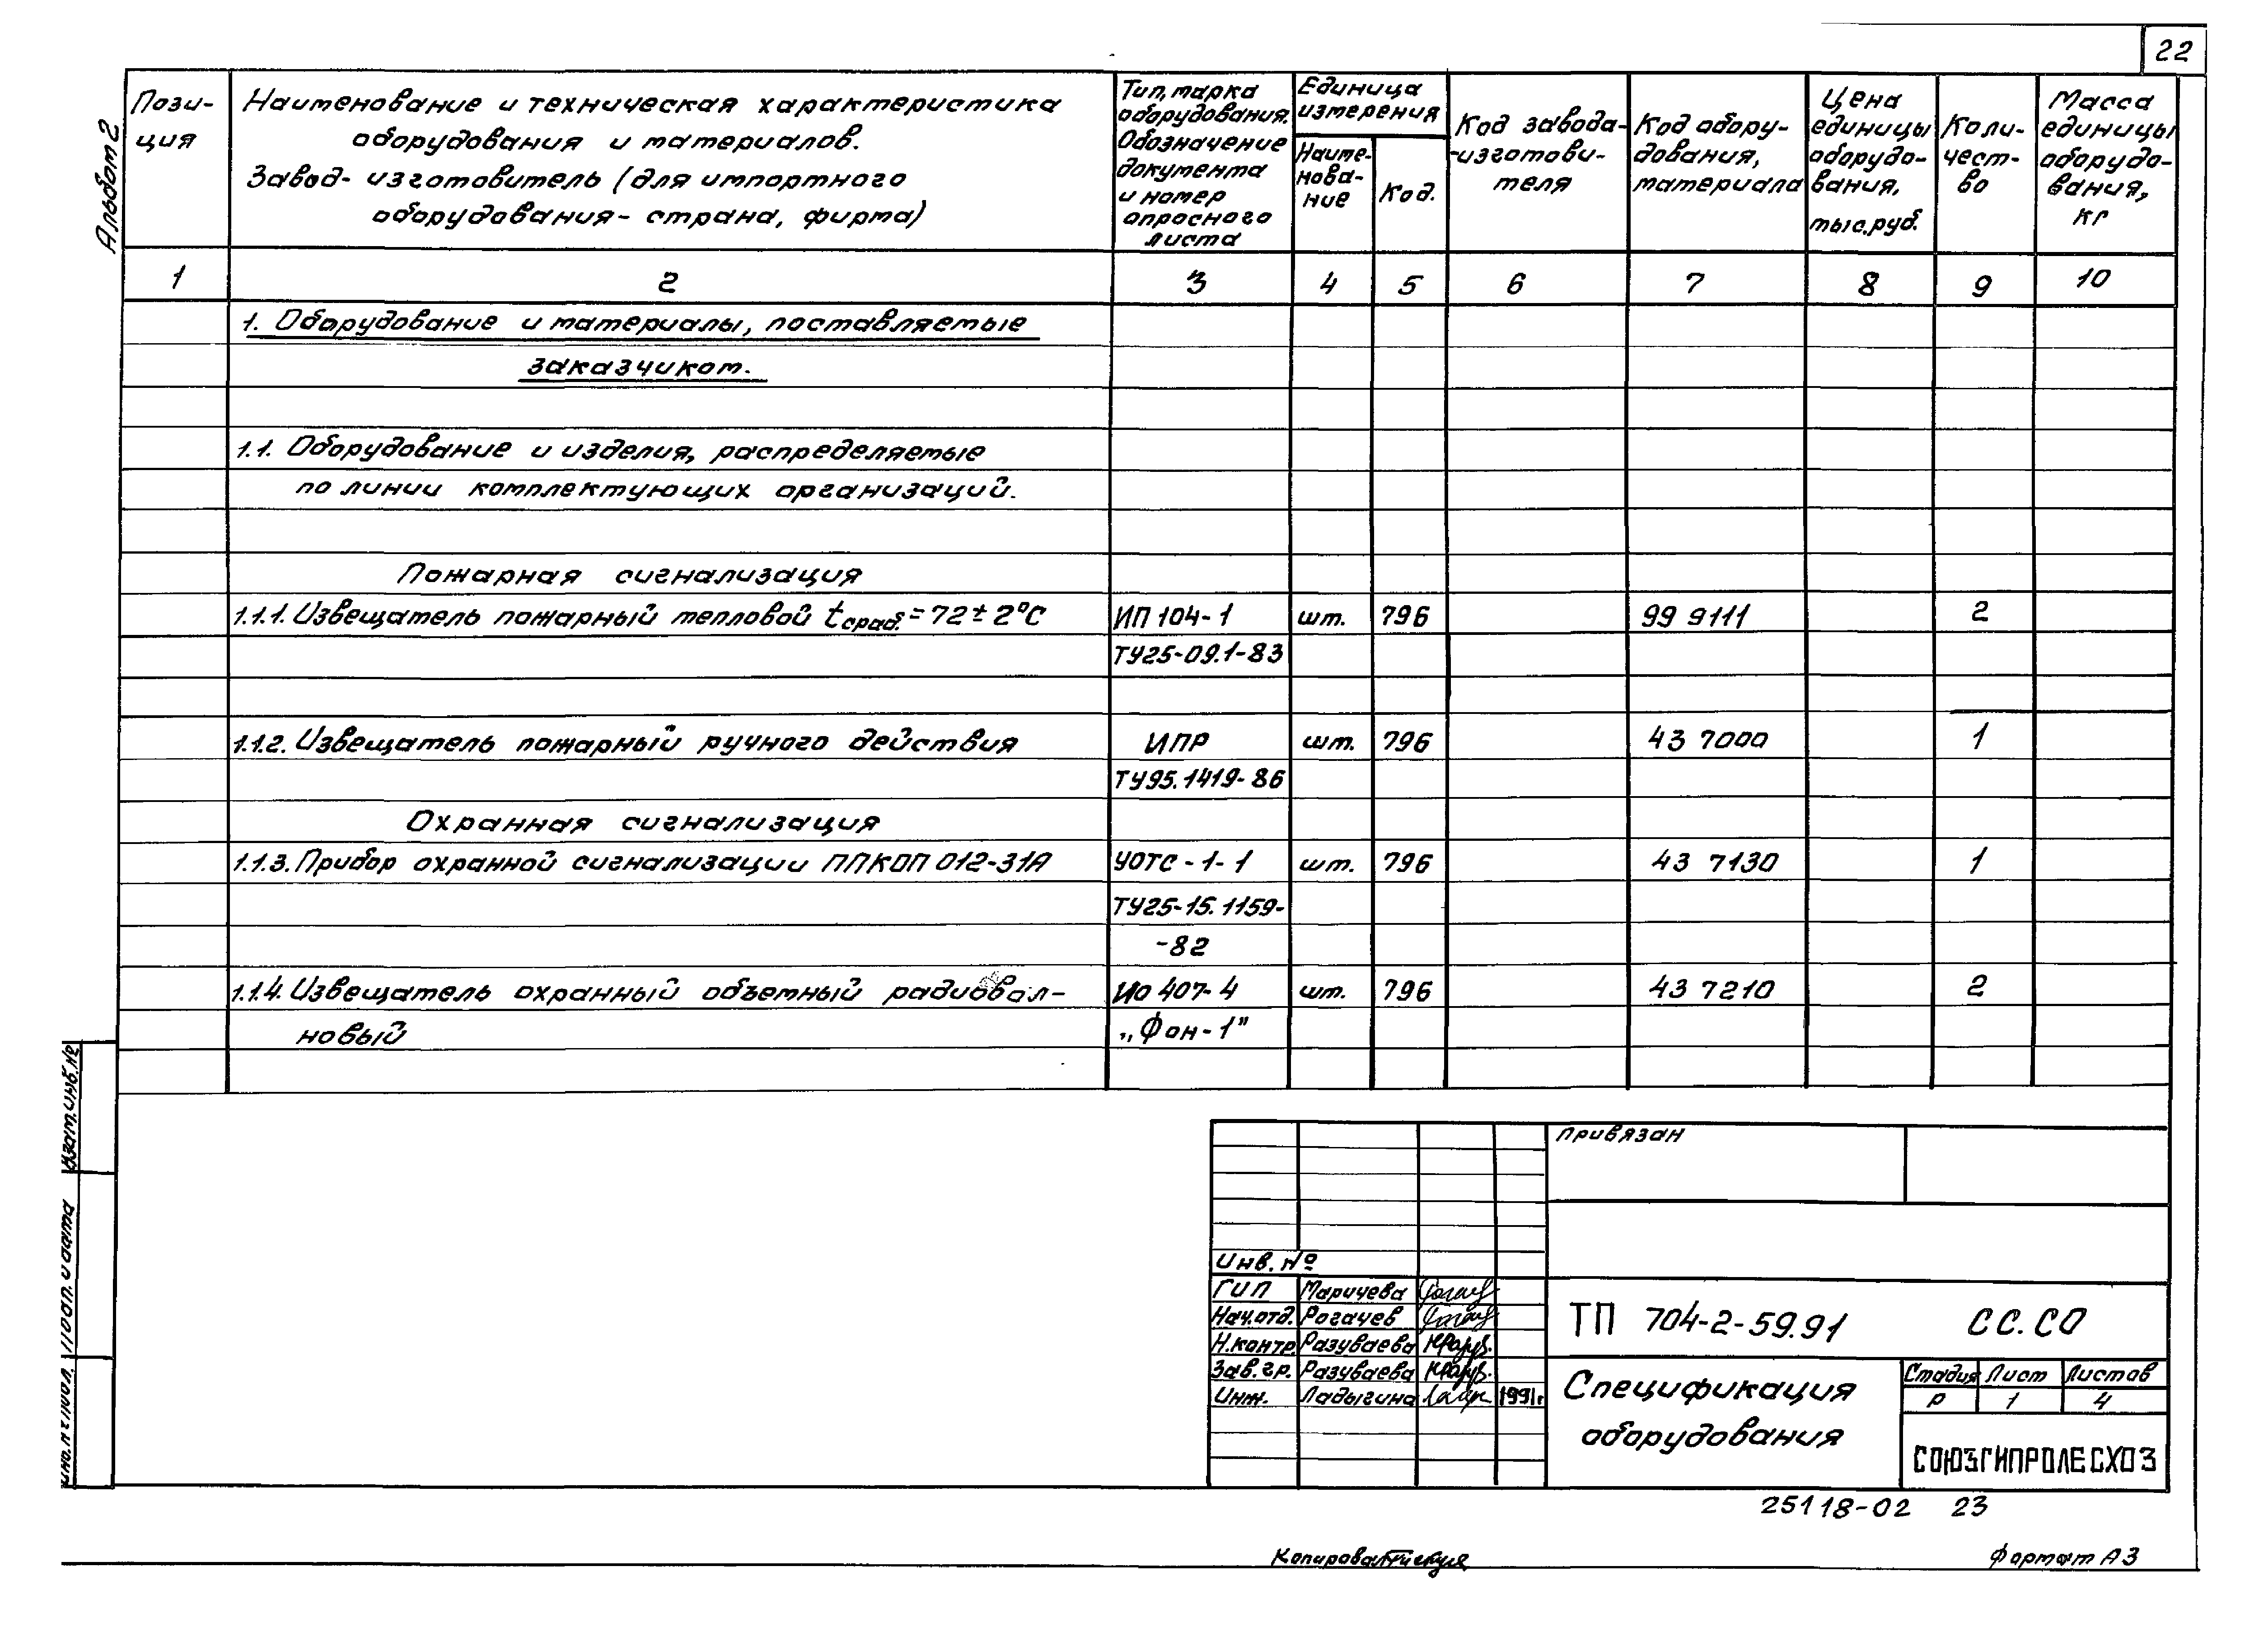 22
Альбом 2
Пози-
ция
Наименование и техническая характеристика
оборудования и материалов.
Завод-изготовитель (для импортного
оборудования- страна, фирма)
Тип, марка
оборудования.
Обозначение
документа
и номер
опросного
листа
Единица
измерения
Наиме-
нова-
ние
Код.
Код завода-
-изготови-
теля
Код обору-
дования,
материала
Цена
единицы
оборудо-
вания,
тыс.руб.
Коли-
чест-
во
Масса
единицы
оборудо-
вания,
кг
1 2 3 4 5 6 7 8 9 10
1. Оборудование и материалы, поставляемые
заказчиком.
1.1. Оборудование и изделия, распределяемые
по линии комплектующих организаций.
Пожарная сигнализация
1.1.1. Извещатель пожарный тепловой tсраб.=72±2°С ИП 104-1 шт. 796 99 9111 2
ТУ25-09.1-83
1.1.2. Извещатель пожарный ручного действия ИПР шт. 796 43 7000 1
ТУ95.1419-86
Охранная сигнализация
1.1.3. Прибор охранной сигнализации ППКОП 012-31А УОТС-1-1 шт. 796 43 7130 1
ТУ25-15.1159-
-82
1.1.4. Извещатель охранный объемный радиовол- ИО 407-4 шт. 796 43 7210 2
новый „Фон-1"
Взам.инв.№
Подп. и дата
Инв.№ подл.
Привязан
Инв. №
ГИП Маричева
Нач.отд. Рогачев
Н.контр. Разуваева
Зав.гр. Разуваева
Инж. Ладыгина 1991г
ТП 704-2-59.91 СС.СО
Спецификация
оборудования
Стадия Лист Листов
Р 1 4
СОЮЗГИПРОЛЕСХОЗ
25118-02 23
Копировал
Формат А3